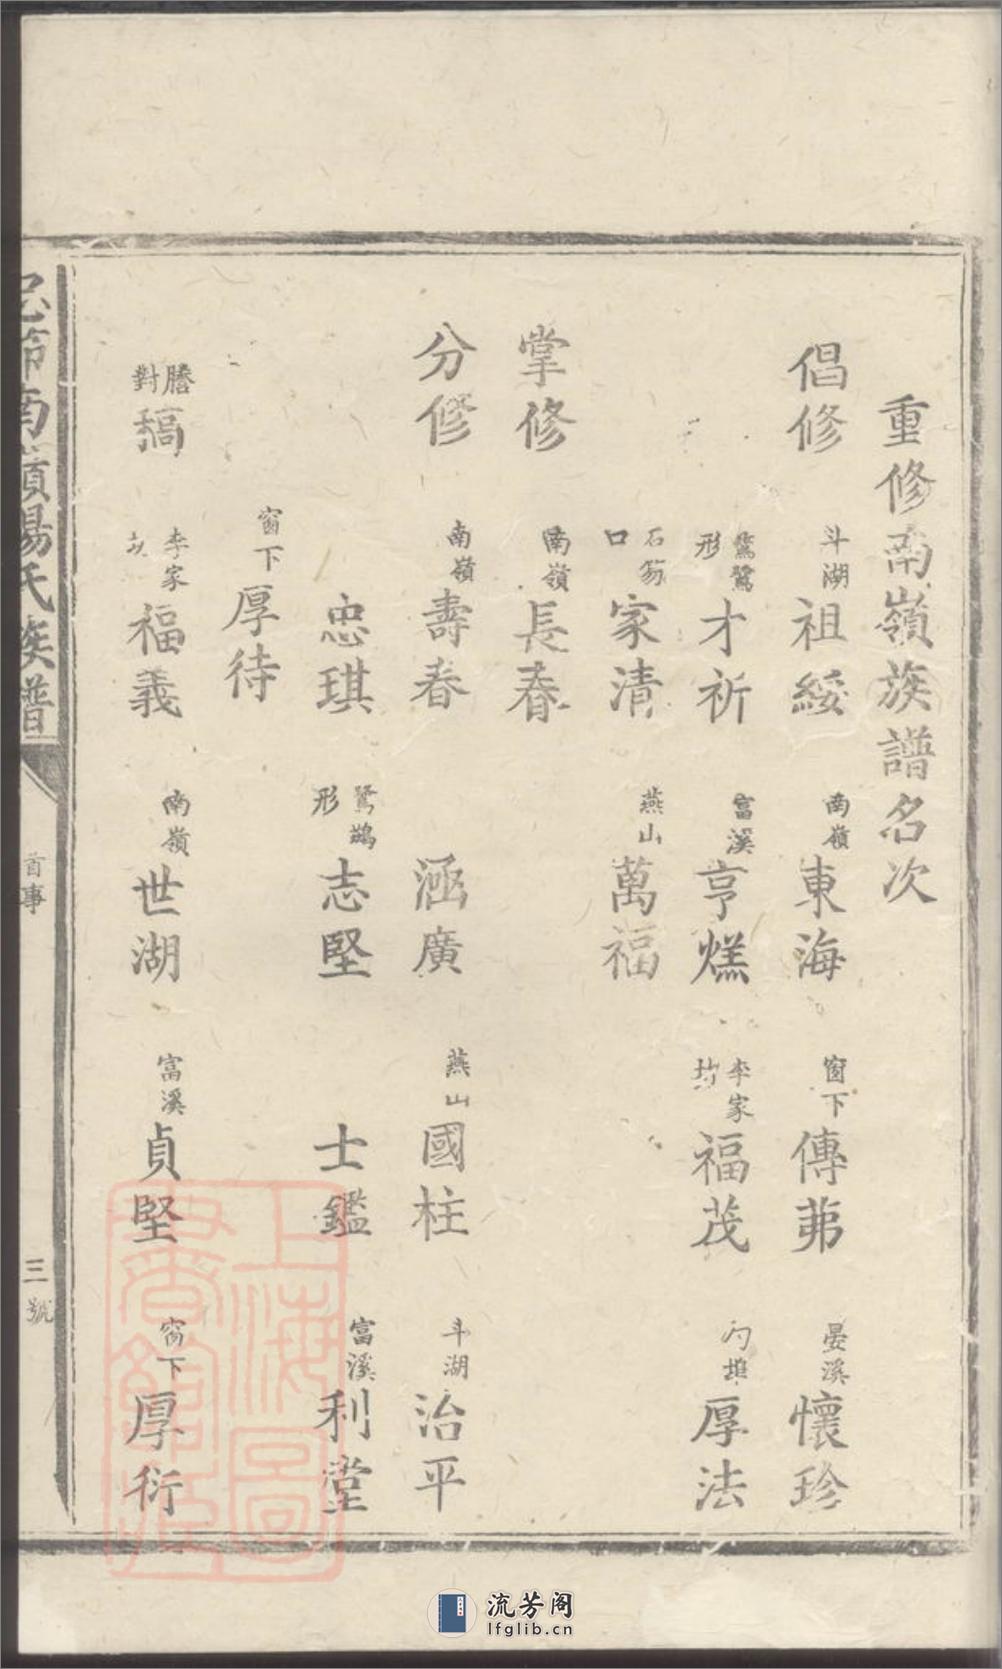 重修南嶺族譜名次
倡修 斗湖 祖綏 南嶺 東海 窗下 傳茀 晏溪 懷珍
鷺鷥形 才祈 富溪 亨爃 李家坊 福茂 勺埠 厚法
石笏口 家清 燕山 萬福
掌修 南嶺 長春
分修 南嶺 壽春 涵廣 燕山 國柱 斗湖 治平
忠琪 鷺鷀形 志堅 士鑑 富溪 利堂
窗下 厚待
謄對稿 李家坊 福義 南嶺 世湖 富溪 貞堅 窗下 厚衍
忠節南嶺楊氏族譜 首事 三號
上海圖書館藏
流芳阁
lfglib.cn